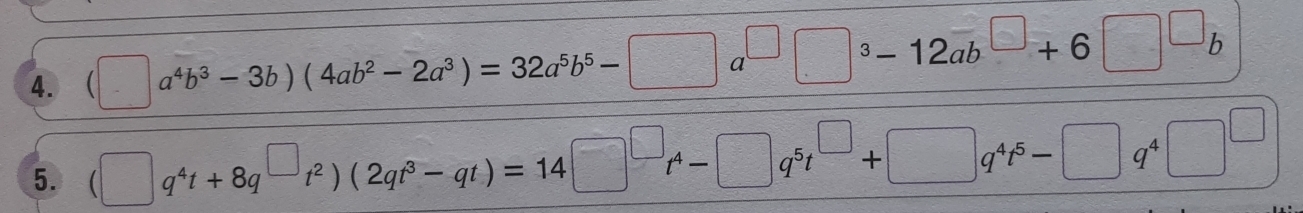 4. (□ a⁴b³ − 3b)(4ab² − 2a³) = 32a⁵b⁵ − □ a^□ □³ − 12ab^□ + 6 □^□ b
5. (□ q⁴t + 8q^□ t²)(2qt³ − qt) = 14 □^□ t⁴ − □ q⁵t^□ + □ q⁴t⁵ − □ q⁴ □^□